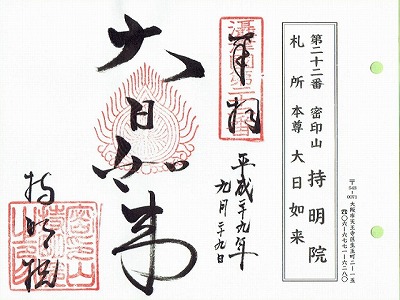 第二十二番 密印山 持明院
札所本尊 大日如来
〒543-0071 大阪市天王寺区生玉町二-一五
☎〇六-六七七一-六二八〇
奉拝
平成十九年
九月二十九日
大日如来
持明院